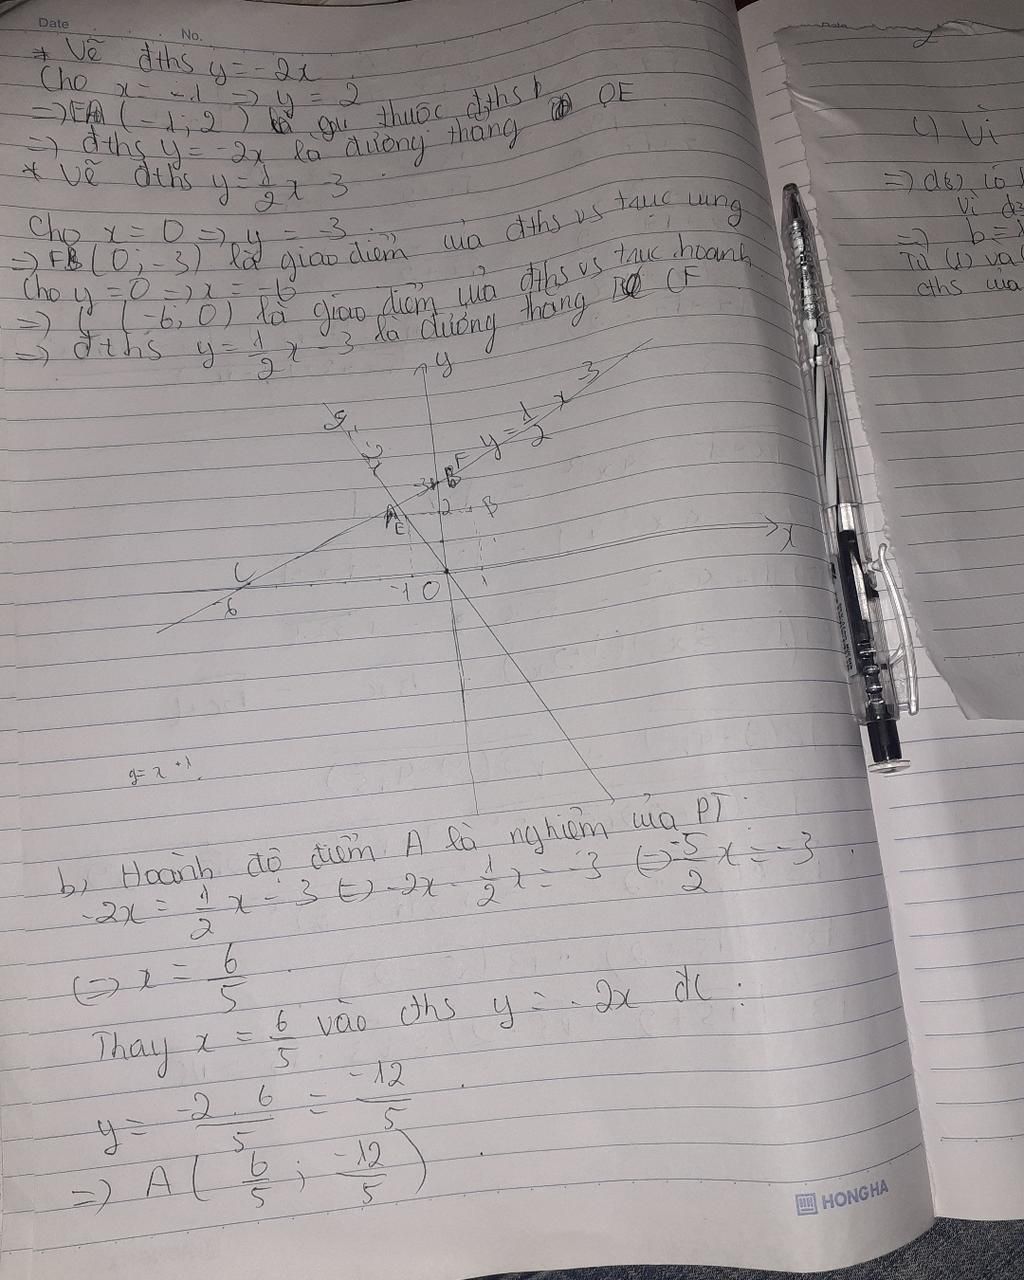 Date
No.
* Vẽ đths y = -2x
Cho x = -1 => y = 2
=> E (-1; 2) thuộc đths
=> đths y = -2x là đường thẳng OE
* Vẽ đths y = 1/2 x 3
Cho x = 0 => y = -3
=> F (0; -3) là giao điểm của đths vs trục tung
Cho y = 0 => x = -6
=> C (-6; 0) là giao điểm của đths vs trục hoành
=> đths y = 1/2 x - 3 là đường thẳng CF
y
y = 1/2 x 3
F
2
B
E
x
C
-1
O
1
-6
y = x + 1
b, Hoành độ điểm A là nghiệm của PT:
-2x = 1/2 x - 3 <=> -2x - 1/2 x = -3 <=> -5/2 x = -3
<=> x = 6/5
Thay x = 6/5 vào đths y = -2x đc:
y = -2 . 6/5 = -12/5
=> A (6/5; -12/5)
HONG HA
c) Vì
=>
Vì
=> b =
Từ (1) và
đths của